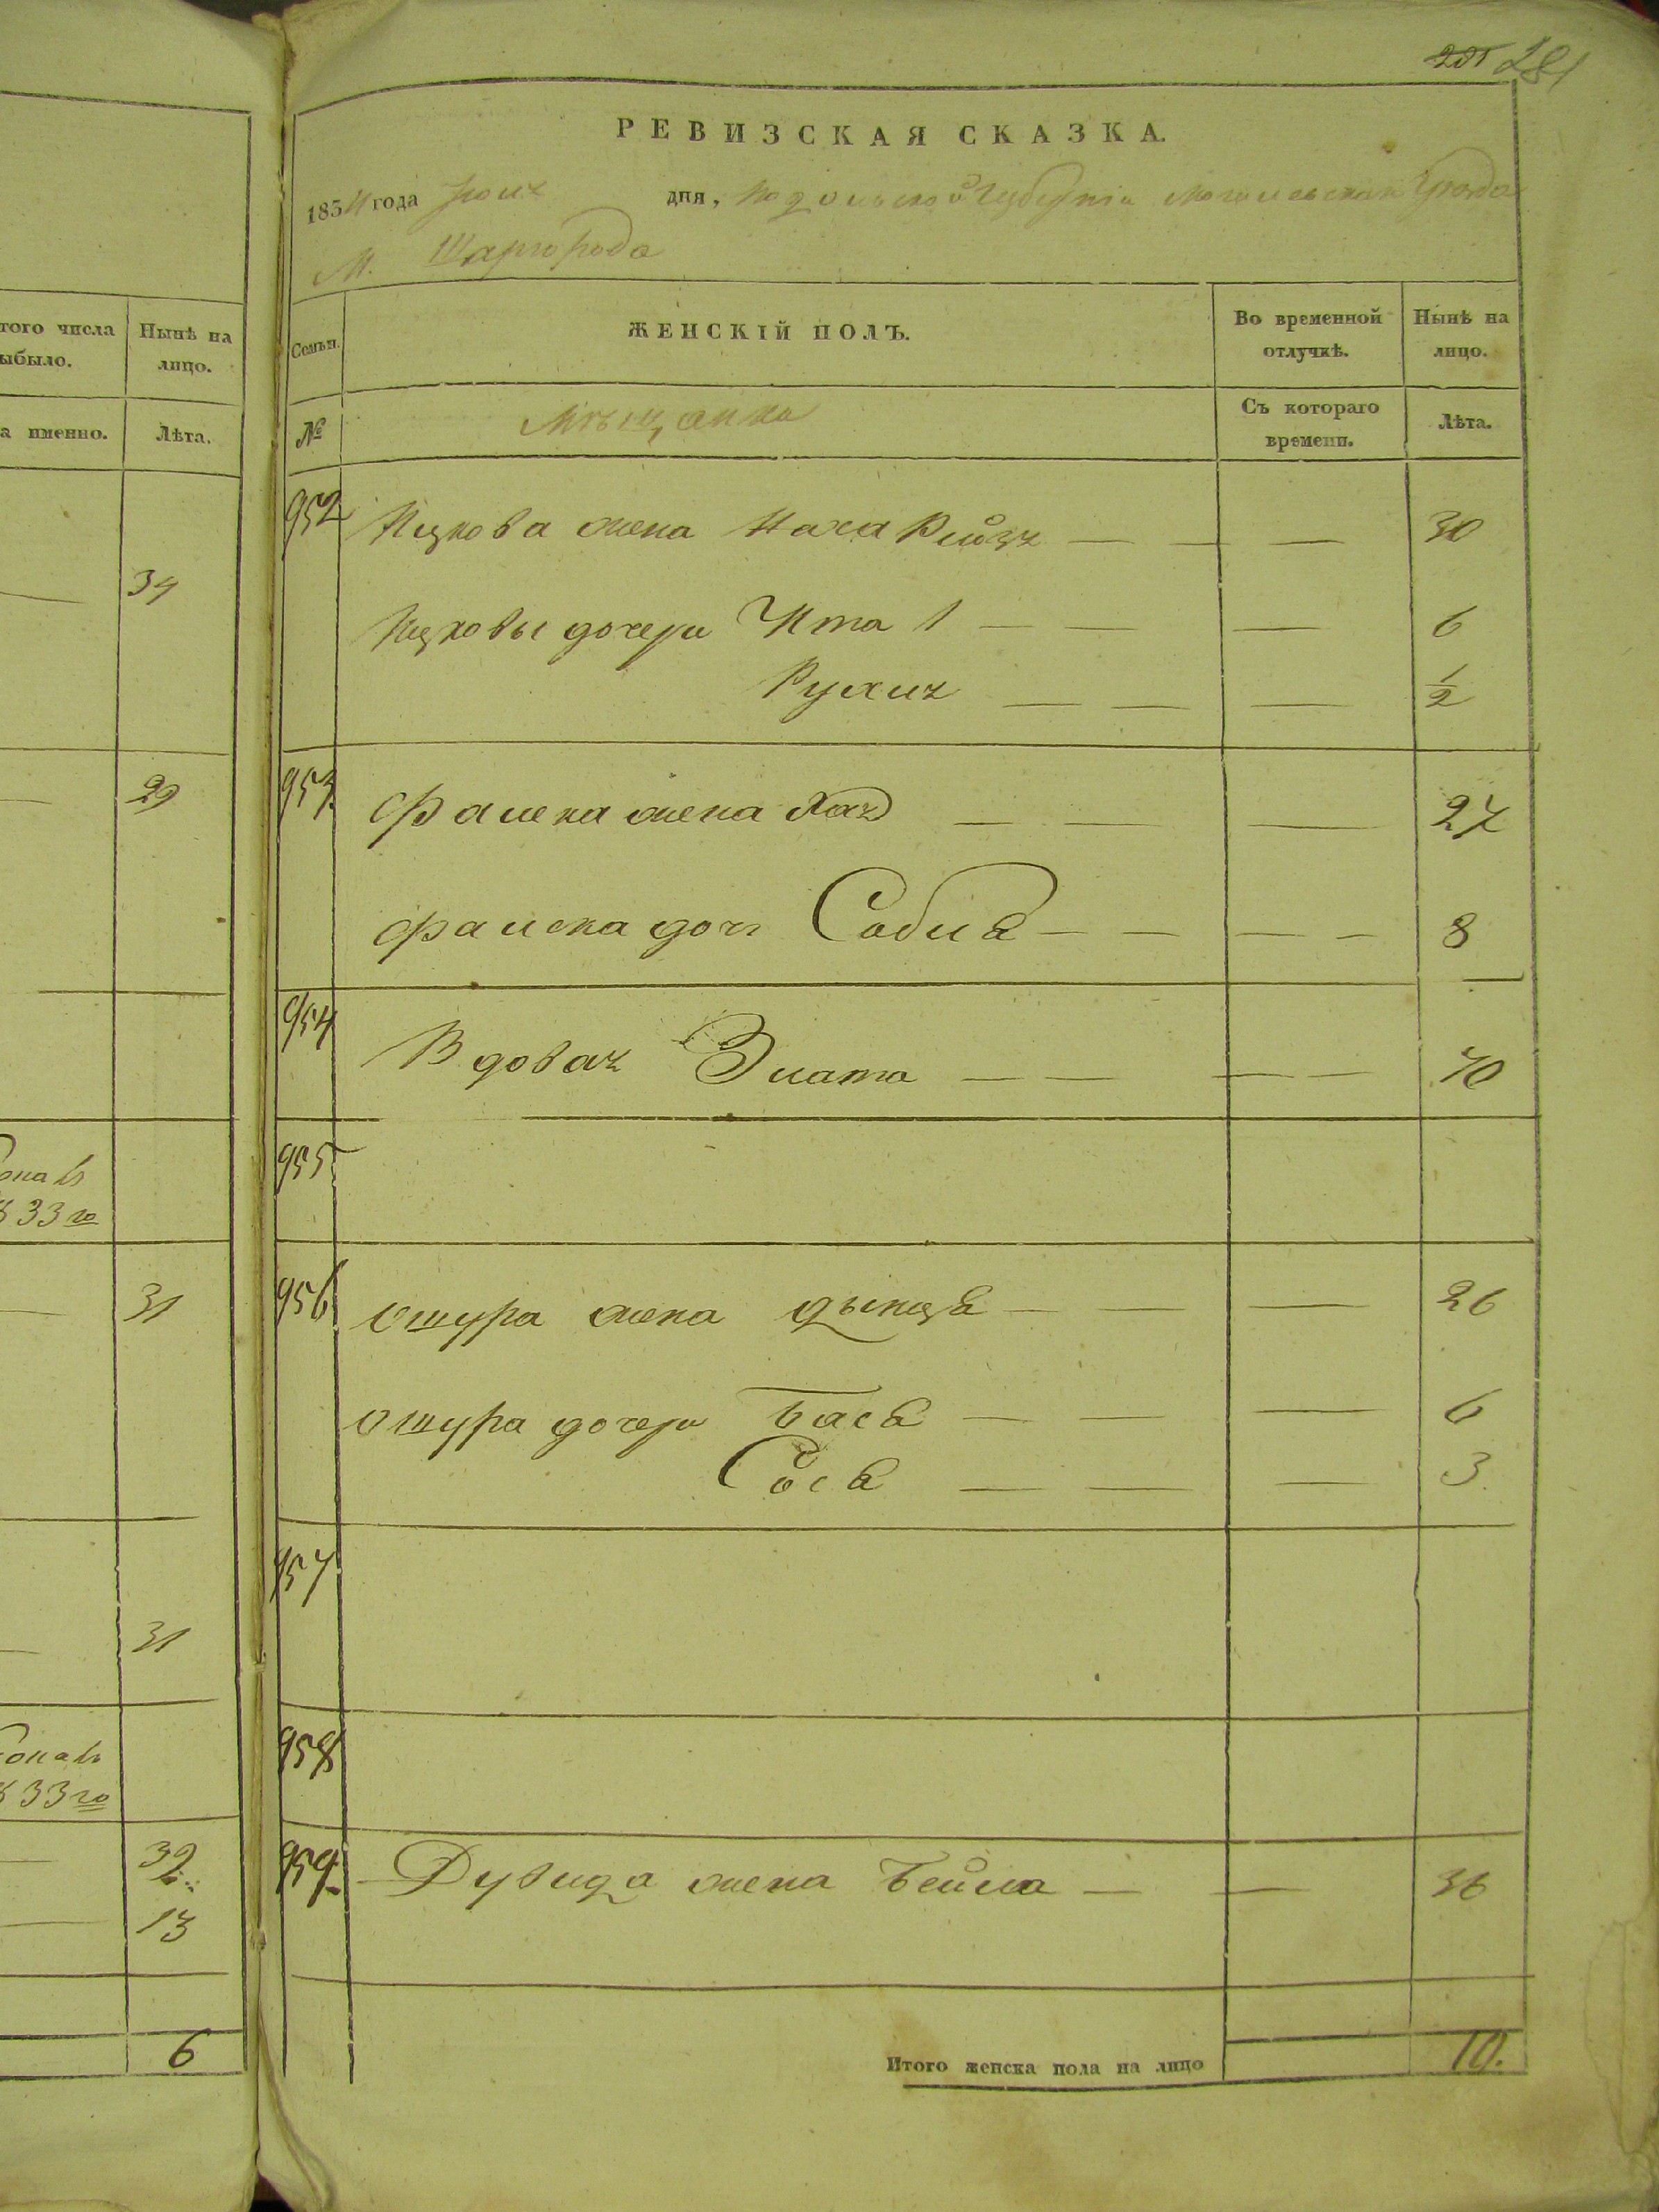 того числа
ыбыло.
Нынѣ на
лицо.
а именно.
Лѣта.
34
29
33 го
31
31
33 го
32
13
6
281
РЕВИЗСКАЯ СКАЗКА.
1834 года Июня дня, Подольской Губерніи Могилевскаго Уезда
М. Шаргорода
Семьи.
ЖЕНСКІЙ ПОЛЪ.
Во временной
отлучкѣ.
Нынѣ на
лицо.
№
Мѣщанка
Съ котораго
времени.
Лѣта.
952 Ицкова жена Наха Рейзя — — — 30
Ицковы дочери Ита 1 — — — 6
Рухля — — — 1/2
953 Фалека жена Хая — — — 27
Фалека дочь Собля — — — — 8
954 Вдовая Злата — — — — 70
955
956 Ошура жена Дынця — — — 26
Ошура дочери Бася — — — 6
Сося — — — 3.
957
958
959. Дувида жена Бейла — — 36
Итого женска пола на лицо 10.